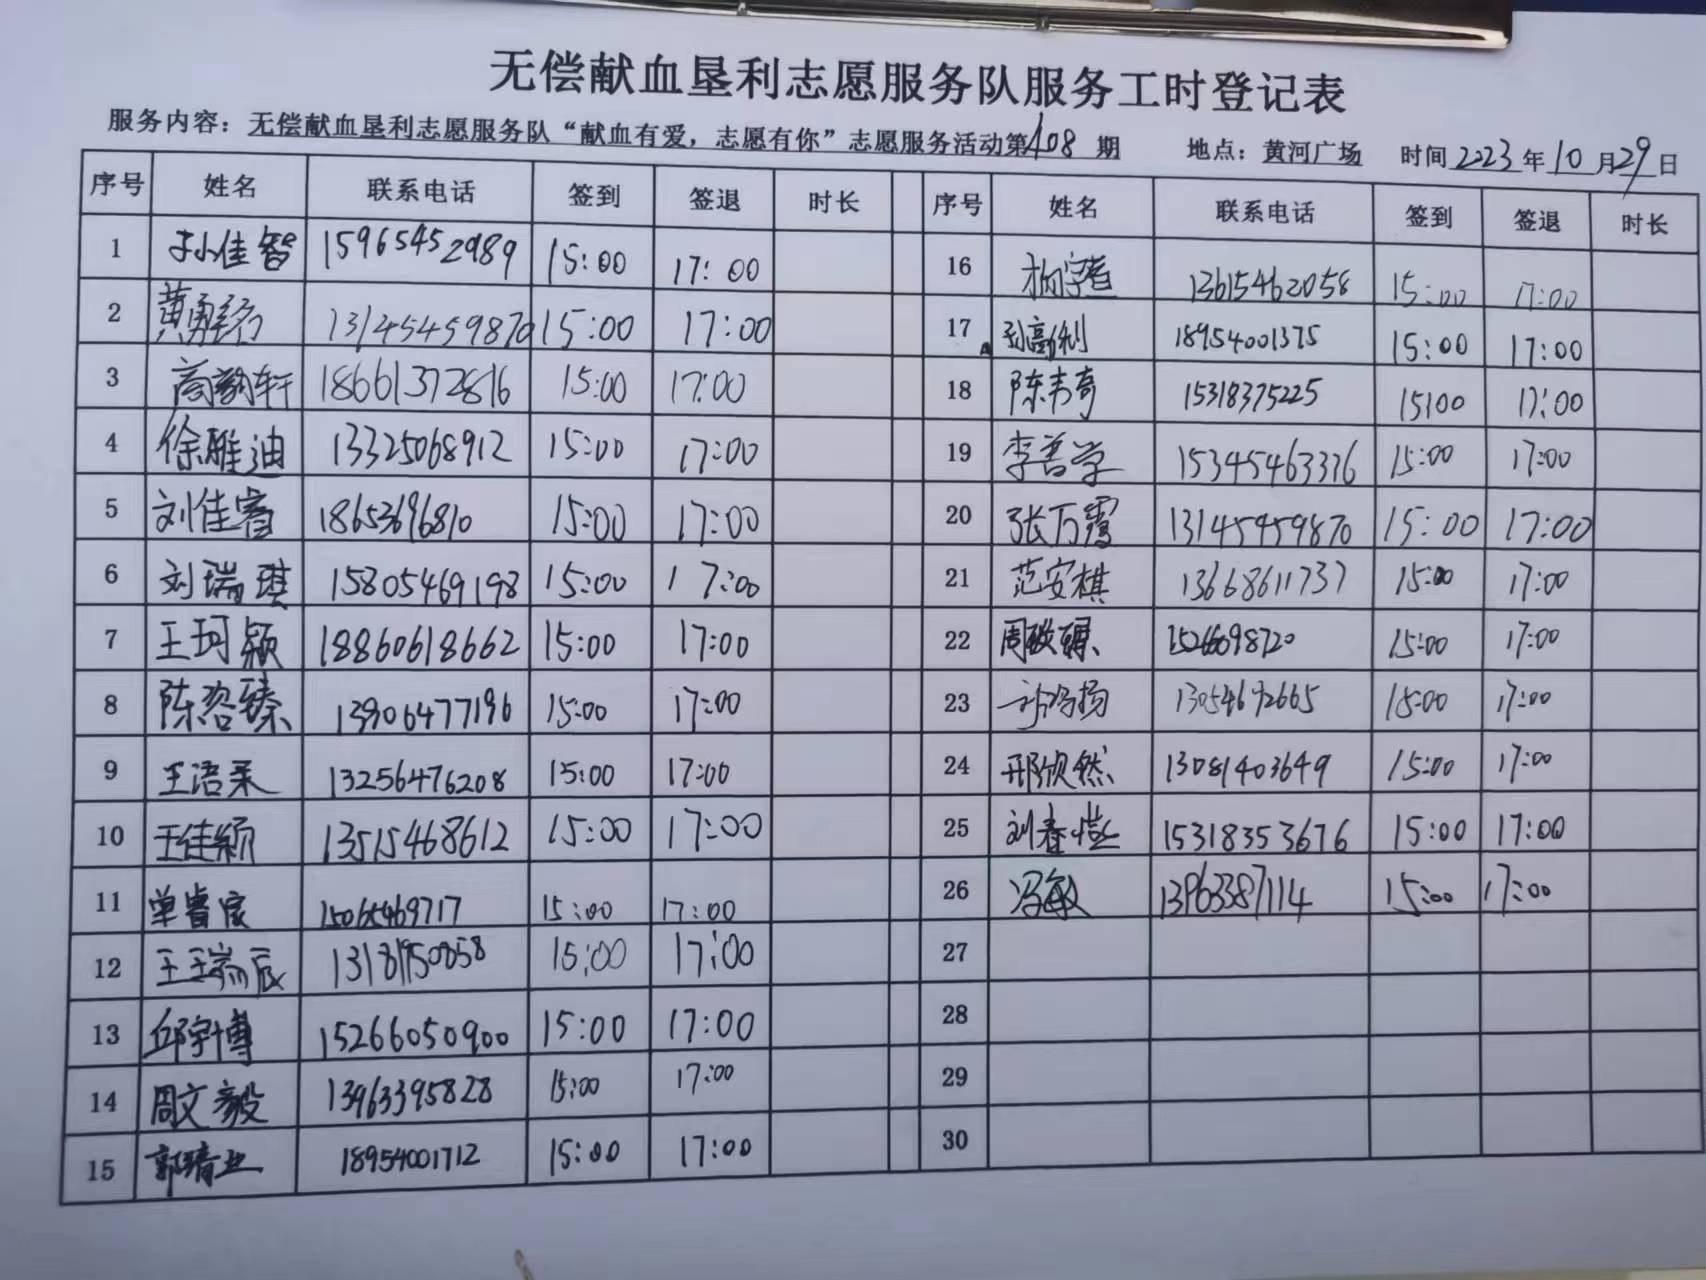 无偿献血垦利志愿服务队服务工时登记表
服务内容：无偿献血垦利志愿服务队“献血有爱，志愿有你”志愿服务活动第108期 地点：黄河广场 时间2023年10月29日
序号 姓名 联系电话 签到 签退 时长 序号 姓名 联系电话 签到 签退 时长
1 孙佳智 15965452989 15:00 17:00 16 13615462058 15:00 17:00
2 黄 13145459870 15:00 17:00 17 孙高利 18954001375 15:00 17:00
3 高韵轩 18661372816 15:00 17:00 18 陈韦奇 15318375225 15:00 17:00
4 徐雕迪 13325068912 15:00 17:00 19 李善学 15345463376 15:00 17:00
5 刘佳睿 18653696810 15:00 17:00 20 张万霞 13145459870 15:00 17:00
6 刘瑞琪 15805469198 15:00 17:00 21 范安棋 13668611737 15:00 17:00
7 王珂颍 18860618662 15:00 17:00 22 15266098720 15:00 17:00
8 陈咨臻 13906477196 15:00 17:00 23 13054692665 15:00 17:00
9 王浯柔 13256476208 15:00 17:00 24 邢欣然 13081403649 15:00 17:00
10 王佳颖 13515468612 15:00 17:00 25 刘春恺 15318353676 15:00 17:00
11 单睿宸 15065469717 15:00 17:00 26 冯敏 13963387114 15:00 17:00
12 王瑞辰 13181950858 15:00 17:00 27
13 邱宇博 15266050900 15:00 17:00 28
14 周文毅 13963395828 15:00 17:00 29
15 郭靖业 18954001712 15:00 17:00 30